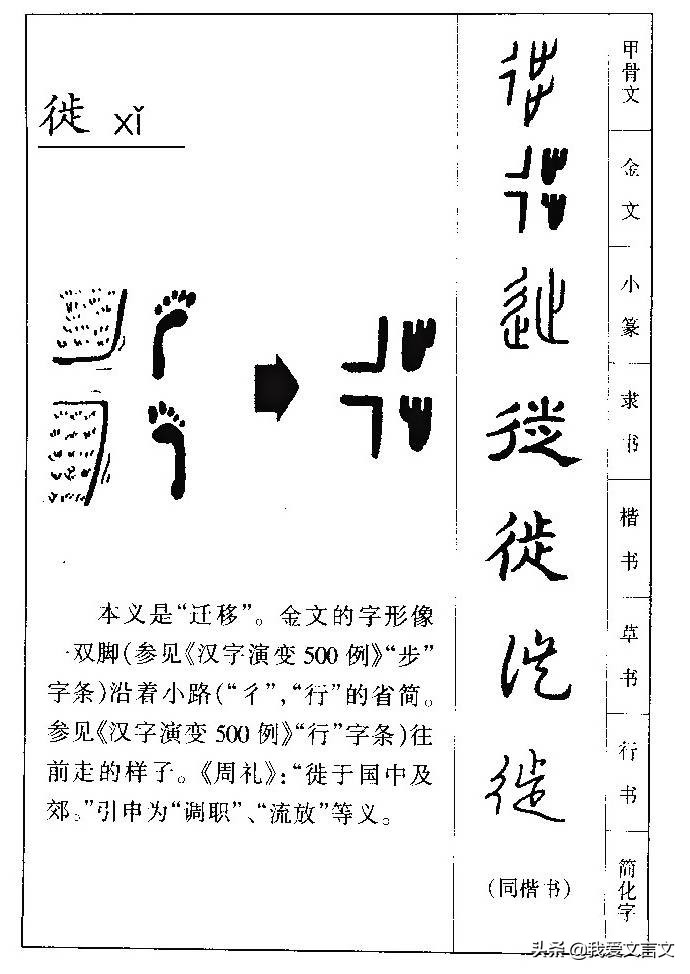 徙 xǐ
本义是“迁移”。金文的字形像
一双脚(参见《汉字演变500例》“步”
字条)沿着小路(“彳”,“行”的省简。
参见《汉字演变500例》“行”字条)往
前走的样子。《周礼》:“徙于国中及
郊。”引申为“调职”、“流放”等义。
甲骨文
金文
小篆
隶书
徙
楷书
徙
草书
徙
行书
徙
(同楷书)
简化字
头条@我爱文言文